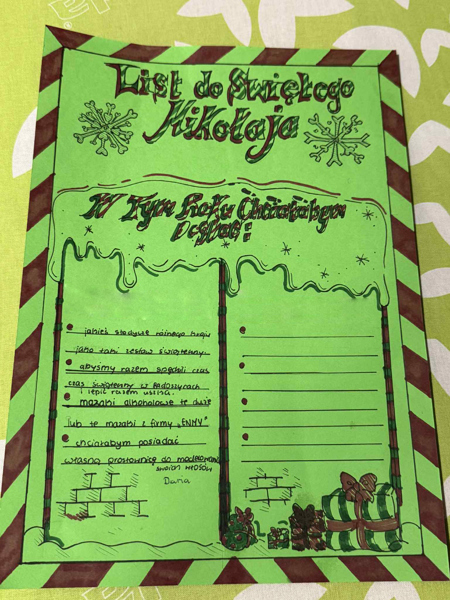 List do Świętego
Mikołaja
W Tym Roku Chciałabym
Dostać:
jakieś słodycze różnego kraju
jako taki zestaw świąteczny
abyśmy razem spędzili czas
czas świąteczny w Radoszycach
i lepić razem uszka.
mazaki alkoholowe te duże
lub te mazaki z firmy „ENNY"
chciałabym posiadać
własną prostownicę do modelowania
swoich włosów
Daria